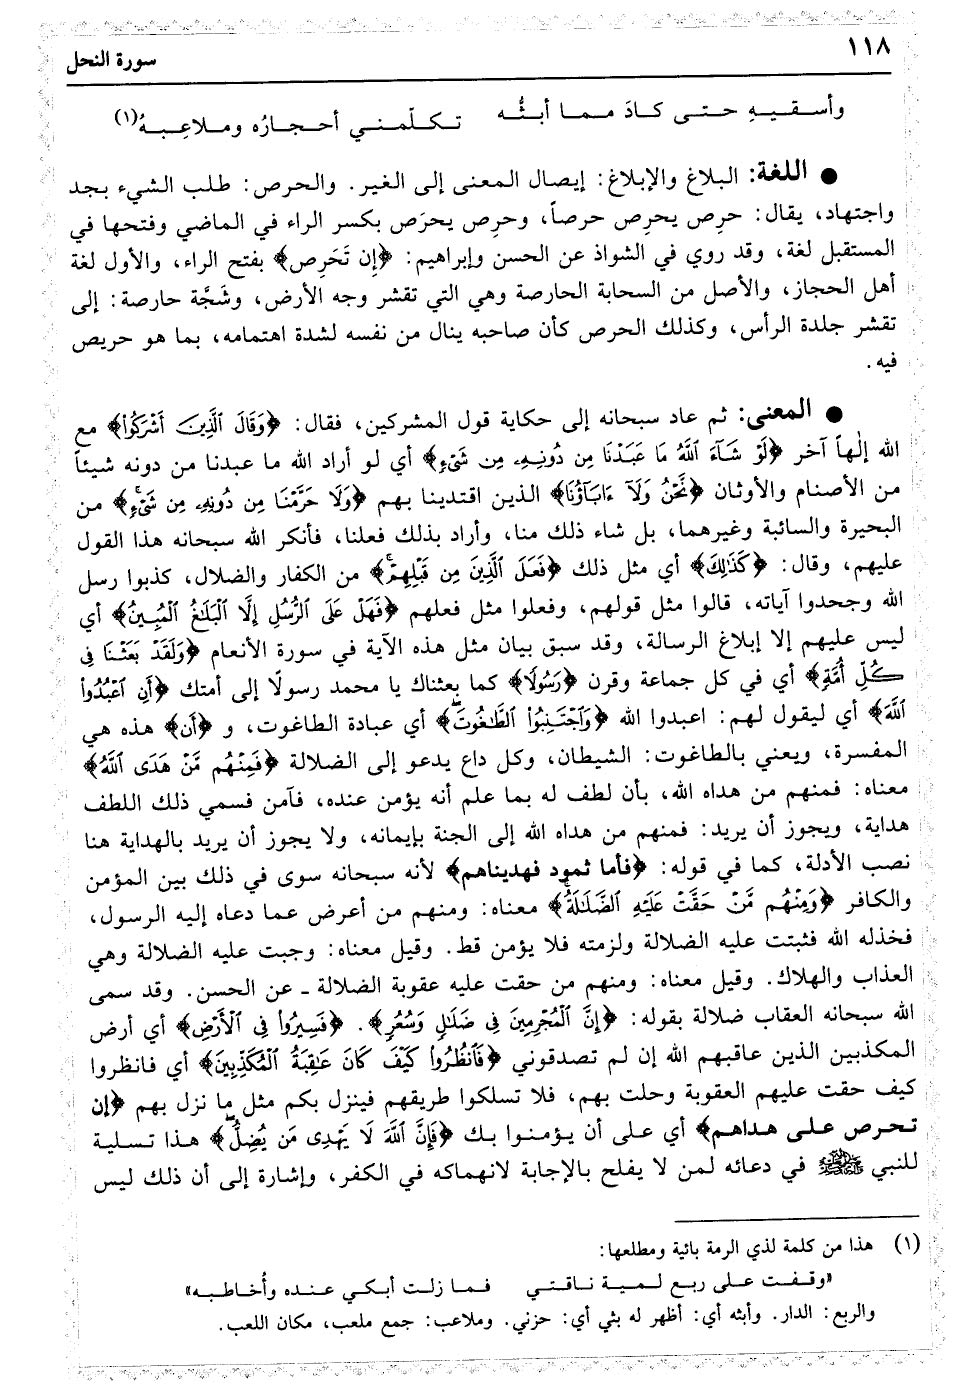 ١١٨
سورة النحل
وأسقيهِ حتى كادَ مما أبثُّه تكلّمني أحجارُه وملاعِبهُ(١)
● اللغة: البلاغ والإبلاغ: إيصال المعنى إلى الغير. والحرص: طلب الشيء بجد
واجتهاد، يقال: حرِص يحرِص حرصاً، وحرِص يحرَص بكسر الراء في الماضي وفتحها في
المستقبل لغة، وقد روي في الشواذ عن الحسن وإبراهيم: ﴿إِن تَحَرِص﴾ بفتح الراء، والأول لغة
أهل الحجاز، والأصل من السحابة الحارصة وهي التي تقشر وجه الأرض، وشَجَّة حارصة: إلى
تقشر جلدة الرأس، وكذلك الحرص كأن صاحبه ينال من نفسه لشدة اهتمامه، بما هو حريص
فيه.
● المعنى: ثم عاد سبحانه إلى حكاية قول المشركين، فقال: ﴿وَقَالَ ٱلَّذِينَ أَشْرَكُوا۟﴾ مع
الله إلٰهاً آخر ﴿لَوْ شَآءَ ٱللَّهُ مَا عَبَدْنَا مِن دُونِهِۦ مِن شَىْءٍ﴾ أي لو أراد الله ما عبدنا من دونه شيئاً
من الأصنام والأوثان ﴿نَّحْنُ وَلَآ ءَابَآؤُنَا﴾ الذين اقتدينا بهم ﴿وَلَا حَرَّمْنَا مِن دُونِهِۦ مِن شَىْءٍ﴾ من
البحيرة والسائبة وغيرهما، بل شاء ذلك منا، وأراد بذلك فعلنا، فأنكر الله سبحانه هذا القول
عليهم، وقال: ﴿كَذَٰلِكَ﴾ أي مثل ذلك ﴿فَعَلَ ٱلَّذِينَ مِن قَبْلِهِمْ﴾ من الكفار والضلال، كذبوا رسل
الله وجحدوا آياته، قالوا مثل قولهم، وفعلوا مثل فعلهم ﴿فَهَلْ عَلَى ٱلرُّسُلِ إِلَّا ٱلْبَلَٰغُ ٱلْمُبِينُ﴾ أي
ليس عليهم إلا إبلاغ الرسالة، وقد سبق بيان مثل هذه الآية في سورة الأنعام ﴿وَلَقَدْ بَعَثْنَا فِى
كُلِّ أُمَّةٍ﴾ أي في كل جماعة وقرن ﴿رَسُولًا﴾ كما بعثناك يا محمد رسولًا إلى أمتك ﴿أَنِ ٱعْبُدُوا۟
ٱللَّهَ﴾ أي ليقول لهم: اعبدوا الله ﴿وَٱجْتَنِبُوا۟ ٱلطَّٰغُوتَ﴾ أي عبادة الطاغوت، و ﴿أن﴾ هذه هي
المفسرة، ويعني بالطاغوت: الشيطان، وكل داع يدعو إلى الضلالة ﴿فَمِنْهُم مَّنْ هَدَى ٱللَّهُ﴾
معناه: فمنهم من هداه الله، بأن لطف له بما علم أنه يؤمن عنده، فآمن فسمي ذلك اللطف
هداية، ويجوز أن يريد: فمنهم من هداه الله إلى الجنة بإيمانه، ولا يجوز أن يريد بالهداية هنا
نصب الأدلة، كما في قوله: ﴿فأما ثمود فهديناهم﴾ لأنه سبحانه سوى في ذلك بين المؤمن
والكافر ﴿وَمِنْهُم مَّنْ حَقَّتْ عَلَيْهِ ٱلضَّلَٰلَةُ﴾ معناه: ومنهم من أعرض عما دعاه إليه الرسول،
فخذله الله فثبتت عليه الضلالة ولزمته فلا يؤمن قط. وقيل معناه: وجبت عليه الضلالة وهي
العذاب والهلاك. وقيل معناه: ومنهم من حقت عليه عقوبة الضلالة ـ عن الحسن. وقد سمى
الله سبحانه العقاب ضلالة بقوله: ﴿إِنَّ ٱلْمُجْرِمِينَ فِى ضَلَٰلٍ وَسُعُرٍ﴾. ﴿فَسِيرُوا۟ فِى ٱلْأَرْضِ﴾ أي أرض
المكذبين الذين عاقبهم الله إن لم تصدقوني ﴿فَٱنظُرُوا۟ كَيْفَ كَانَ عَٰقِبَةُ ٱلْمُكَذِّبِينَ﴾ أي فانظروا
كيف حقت عليهم العقوبة وحلت بهم، فلا تسلكوا طريقهم فينزل بكم مثل ما نزل بهم ﴿إن
تحرص على هداهم﴾ أي على أن يؤمنوا بك ﴿فَإِنَّ ٱللَّهَ لَا يَهْدِى مَن يُضِلُّ﴾ هذا تسلية
للنبي ﷺ في دعائه لمن لا يفلح بالإجابة لانهماكه في الكفر، وإشارة إلى أن ذلك ليس
(١) هذا من كلمة لذي الرمة بائية ومطلعها:
«وقفت على ربع لمية ناقتي فما زلت أبكي عنده وأُخاطبه»
والربع: الدار. وأبثه أي: أظهر له بثي أي: حزني. وملاعب: جمع ملعب، مكان اللعب.